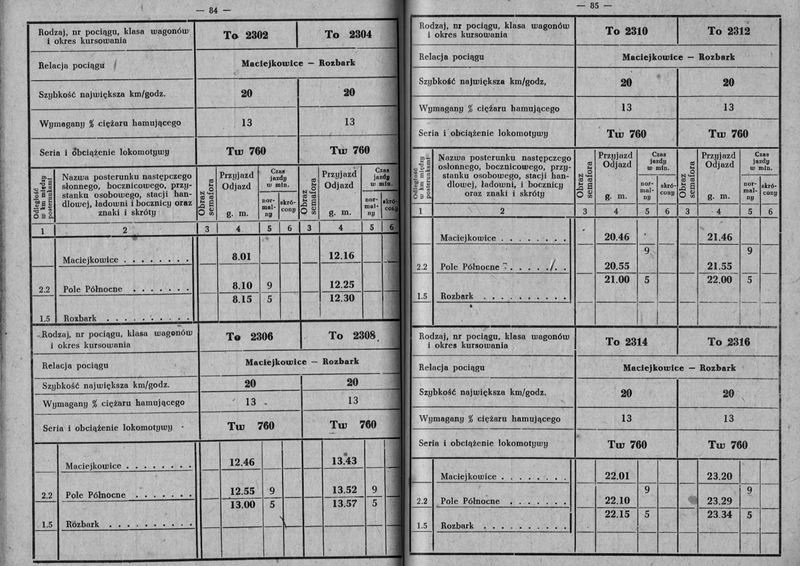 — 84 —
Rodzaj, nr pociągu, klasa wagonów i okres kursowania To 2302 To 2304
Relacja pociągu Maciejkowice — Rozbark
Szybkość największa km/godz. 20 20
Wymagany % ciężaru hamującego 13 13
Seria i obciążenie lokomotywy Tw 760 Tw 760
Odległość w km między posterunkami
Nazwa posterunku następczego
słonnego, bocznicowego, przy-
stanku osobowego, stacji han-
dlowej, ładowni i bocznicy oraz
znaki i skróty
Obraz semafora
Przyjazd
Odjazd
g. m.
Czas jazdy w min.
nor-mal-ny
skró-cony
Obraz semafora
Przyjazd
Odjazd
g. m.
Czas jazdy w min.
nor-mal-ny
skró-cony
1 2 3 4 5 6 3 4 5 6
Maciejkowice . . . . . . . . 8.01 12.16
2.2 Pole Północne . . . . . . . 8.10 9 12.25
8.15 5 12.30
1.5 Rozbark . . . . . . . . . .
Rodzaj, nr pociągu, klasa wagonów i okres kursowania To 2306 To 2308
Relacja pociągu Maciejkowice — Rozbark
Szybkość największa km/godz. 20 20
Wymagany % ciężaru hamującego 13 13
Seria i obciążenie lokomotywy Tw 760 Tw 760
Maciejkowice . . . . . . . . 12.46 13.43
2.2 Pole Północne . . . . . . . 12.55 9 13.52 9
13.00 5 13.57 5
1.5 Rozbark . . . . . . . . . .
— 85 —
Rodzaj, nr pociągu, klasa wagonów i okres kursowania To 2310 To 2312
Relacja pociągu Maciejkowice — Rozbark
Szybkość największa km/godz, 20 20
Wymagany % ciężaru hamującego 13 13
Seria i obciążenie lokomotywy Tw 760 Tw 760
Odległość w km między posterunkami
Nazwa posterunku następczego
osłonnego, bocznicowego, przy-
stanku osobowego, stacji han-
dlowej, ładowni, i bocznicy
oraz znaki i skróty
Obraz semafora
Przyjazd
Odjazd
g. m.
Czas jazdy w min.
nor-mal-ny
skró-cony
Obraz semafora
Przyjazd
Odjazd
g. m.
Czas jazdy w min.
nor-mal-ny
skró-cony
1 2 3 4 5 6 3 4 5 6
Maciejkowice . . . . . . . . 20.46 21.46
9 9
2.2 Pole Północne . . . . . . . 20.55 21.55
21.00 5 22.00 5
1.5 Rozbark . . . . . . . . . .
Rodzaj, nr pociągu, klasa wagonów i okres kursowania To 2314 To 2316
Relacja pociągu Maciejkowice — Rozbark
Szybkość największa km/godz. 20 20
Wymagany % ciężaru hamującego 13 13
Seria i obciążenie lokomotywy Tw 760 Tw 760
Maciejkowice . . . . . . . . 22.01 23.20
9 9
2.2 Pole Północne . . . . . . . 22.10 23.29
22.15 5 23.34 5
1.5 Rozbark . . . . . . . . . .